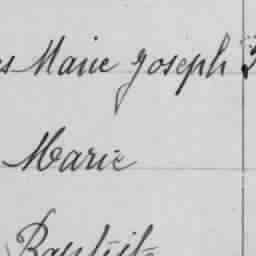 es Marie Joseph
Marie
Baptiste